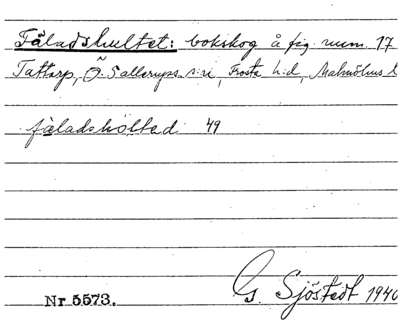 Fåladshultet: bokskog å fig. num. 17
Tattarp, Ö. Sallerups s:n, Frosta h:d, Malmöhus l
fàladshộltad 49
G. Sjöstedt 1940
Nr 5573.